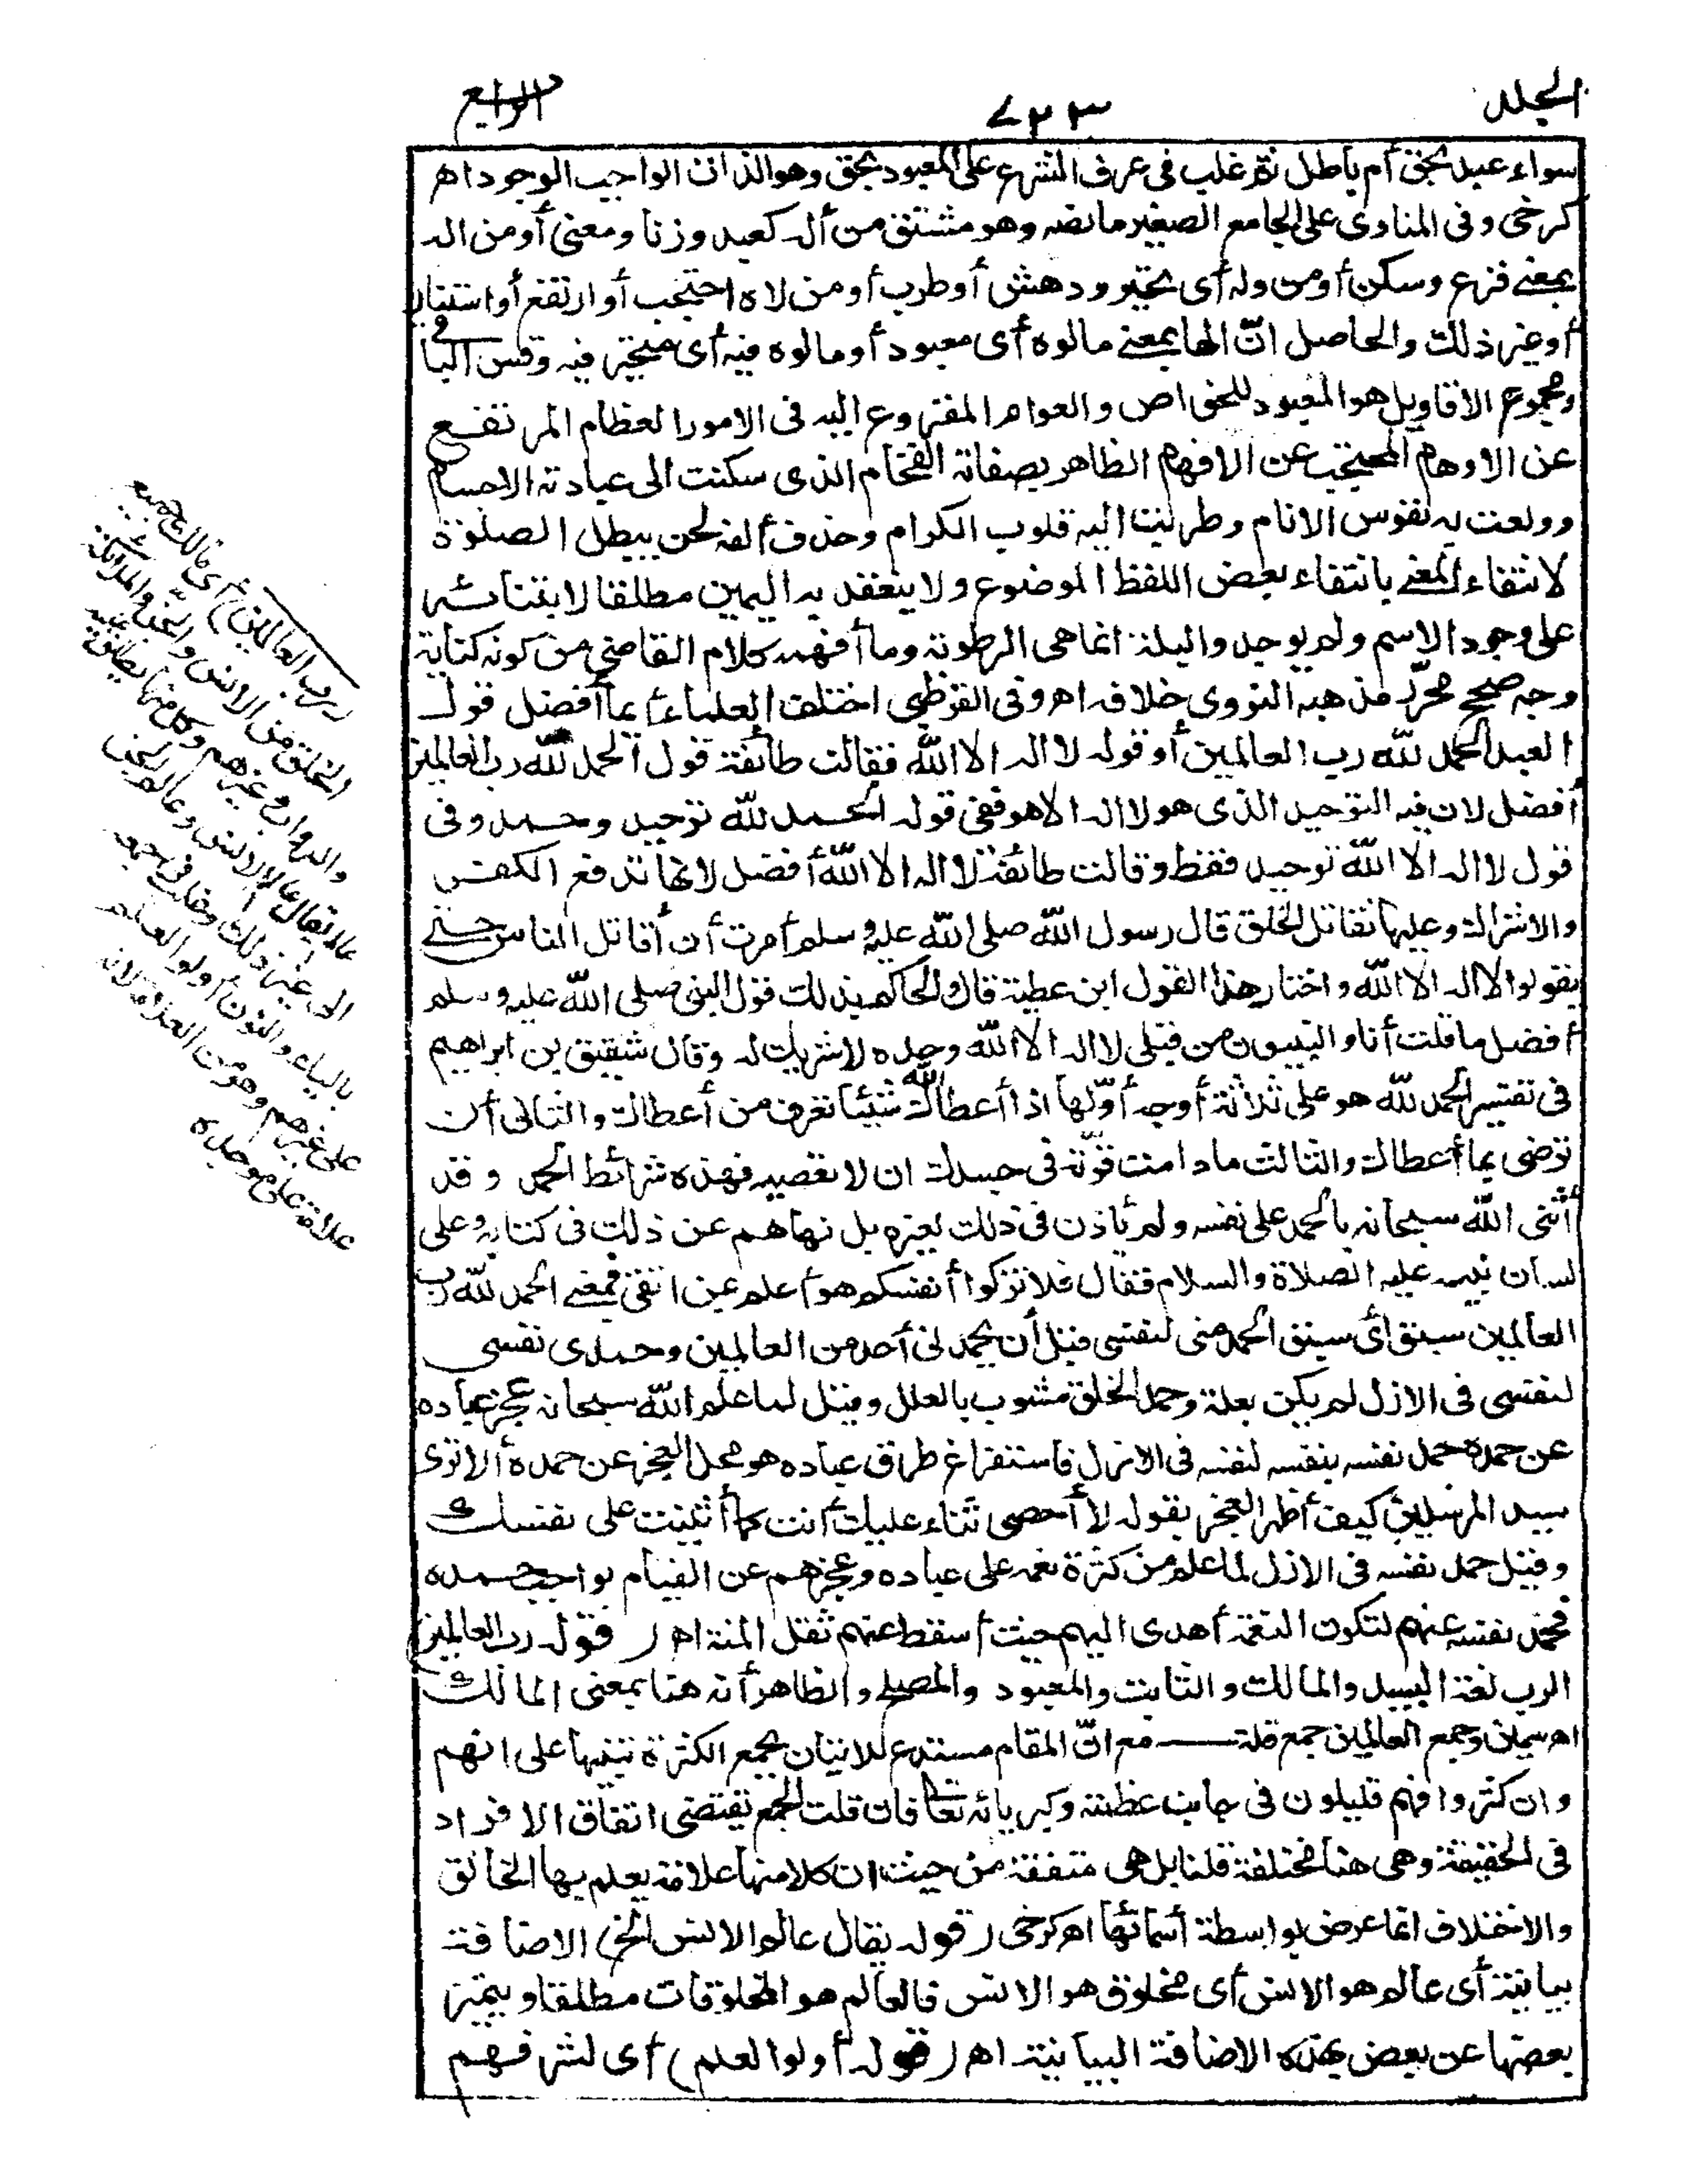 الجلد
٧٢٣
الرابع
سواء عبد بحق أم باطل ثم غلب فى عرف الشرع على المعبود بحق وهو الذات الواجب الوجود اه
كرخى وفى المناوى على الجامع الصغير ما نصه وهو مشتق من أله كعبد وزنا ومعنى أو من اله
بمعنى فزع وسكن أو من وله أى تحير ودهش أو طرب أو من لاه احتجب أو ارتفع أو استنار
أو غير ذلك والحاصل انّ الها بمعنى مالوه أى معبود أو مالوه فيه أى متحير فيه وقس الباقى
ومجموع الاقاويل هو المعبود للخواص والعوام المفزوع اليه فى الامور العظام المرتفع
عن الاوهام المحتجب عن الافهام الظاهر بصفاته الفخام الذى سكنت الى عبادته الاجسام
وولعت به نفوس الانام وطربت اليه قلوب الكرام وحذف ألفه لحن يبطل الصلوة
لانتفاء المعنى بانتفاء بعض اللفظ الموضوع ولا ينعقد به اليمين مطلقا لابتنائه
على وجود الاسم ولم يوجد والبلة انما هى الرطوبة وما أفهمه كلام القاضى من كونه كناية
وجه صحيح محرّر مذهبه النووى خلافه اه وفى القرطبى اختلف العلماء أيما أفضل قول
العبد الحمد لله رب العالمين أو قوله لا اله الا الله فقالت طائفة قول الحمد لله رب العالمين
أفضل لان فيه التوحيد الذى هو لا اله الا هو ففى قوله الحمد لله توحيد وحمد وفى
قول لا اله الا الله توحيد فقط وقالت طائفة لا اله الا الله أفضل لانها تدفع الكفر
والاشراك وعليها تقاتل الخلق قال رسول الله صلى الله عليه وسلم أمرت أن أقاتل الناس حتى
يقولوا لا اله الا الله واختار هذا القول ابن عطية قال والحاكم بذلك قول النبى صلى الله عليه وسلم
أفضل ما قلت أنا والنبيون من قبلى لا اله الا الله وحده لا شريك له وقال شقيق بن ابراهيم
فى تفسير الحمد لله هو على ثلاثة أوجه أوّلها اذا أعطاك الله شيئا تعرف من أعطاك والثانى أن
ترضى بما أعطاك والثالث ما دامت قوّته فى جسدك ان لا تعصيه فهذه شرائط الحمد وقد
أثنى الله سبحانه بالحمد على نفسه ولم يأذن فى ذلك لغيره بل نهاهم عن ذلك فى كتابه وعلى
لسان نبيه عليه الصلاة والسلام فقال فلا تزكوا أنفسكم هو أعلم بمن اتقى فمعنى الحمد لله رب
العالمين سبق أى سبق الحمد منى لنفسى قبل أن يحمدنى أحد من العالمين وحمدى نفسى
لنفسى فى الازل لم يكن بعلة وحمد الخلق مشوب بالعلل وقيل لما علم الله سبحانه عجز عباده
عن حمده حمد نفسه بنفسه لنفسه فى الازل فاستفراغ طراق عباده هو محل العجز عن حمده ألا ترى
سيد المرسلين كيف أظهر العجز بقوله لا أحصى ثناء عليك أنت كما أثنيت على نفسك
وقيل حمد نفسه فى الازل لما علم من كثرة نعمه على عباده وعجزهم عن القيام بواجب حمده
فحمد نفسه عنهم لتكون النعمة أهدى اليهم حيث أسقط عنهم ثقل المنة اه ( قوله رب العالمين)
الرب لغة السيد والمالك والثابت والمعبود والمصلح والظاهر أنه هنا بمعنى المالك
اه سمين وجمع العالمين جمع قلة مع انّ المقام مستدع للاتيان بجمع الكثرة تنبيها على انهم
وان كثروا فهم قليلون فى جانب عظمته وكبريائه تعالى فان قلت الجمع يقتضى اتفاق الافراد
فى الحقيقة وهى هنا مختلفة قلنا بل هى متفقة من حيث ان كلا منها علامة يعلم بها الخالق
والاختلاف انما عرض بواسطة أسمائها اه كرخى ( قوله يقال عالم الانس الخ) الاضافة
بيانية أى عالم هو الانس أى مخلوق هو الانس فالعالم هو المخلوقات مطلقا ويتميز
بعضها عن بعض بهذه الاضافة البيانية اه ( قوله أولوا العلم) أى لشرفهم
(رب العالمين) أى مالك جميع
الخلق من الانس والجنّ والملائكة
والدواب وغيرهم وكل منها يطلق عليه
عالم يقال عالم الانس وعالم الجن
الى غير ذلك وغلب فى جمعه
بالياء والنون أولوا العلم
على غيرهم وهو من العلامة لانه
علامة على موجده